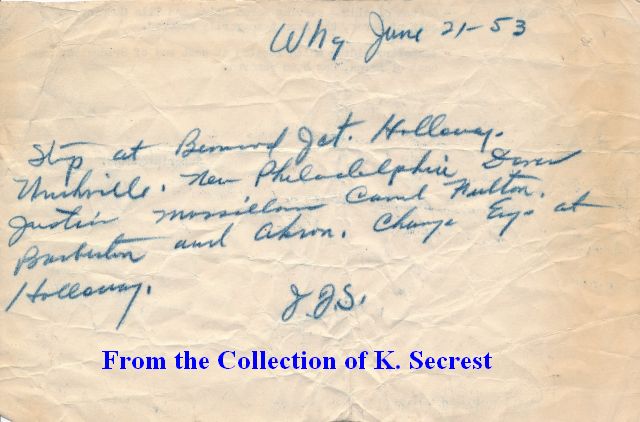 Whg June 21-53
Stop at Benwood Jct. Holloway.
Uhrichville. New Philadelphia Dover
Justus Massillon Canal Fulton.
Barberton and Akron. Change Engs at
Holloway.
J.J.S.
From the Collection of K. Secrest